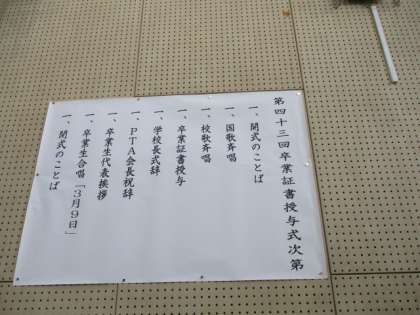 第四十三回卒業証書授与式次第
一、開式のことば
一、国歌斉唱
一、校歌斉唱
一、卒業証書授与
一、学校長式辞
一、PTA会長祝辞
一、卒業生代表挨拶
一、卒業生合唱「3月9日」
一、閉式のことば